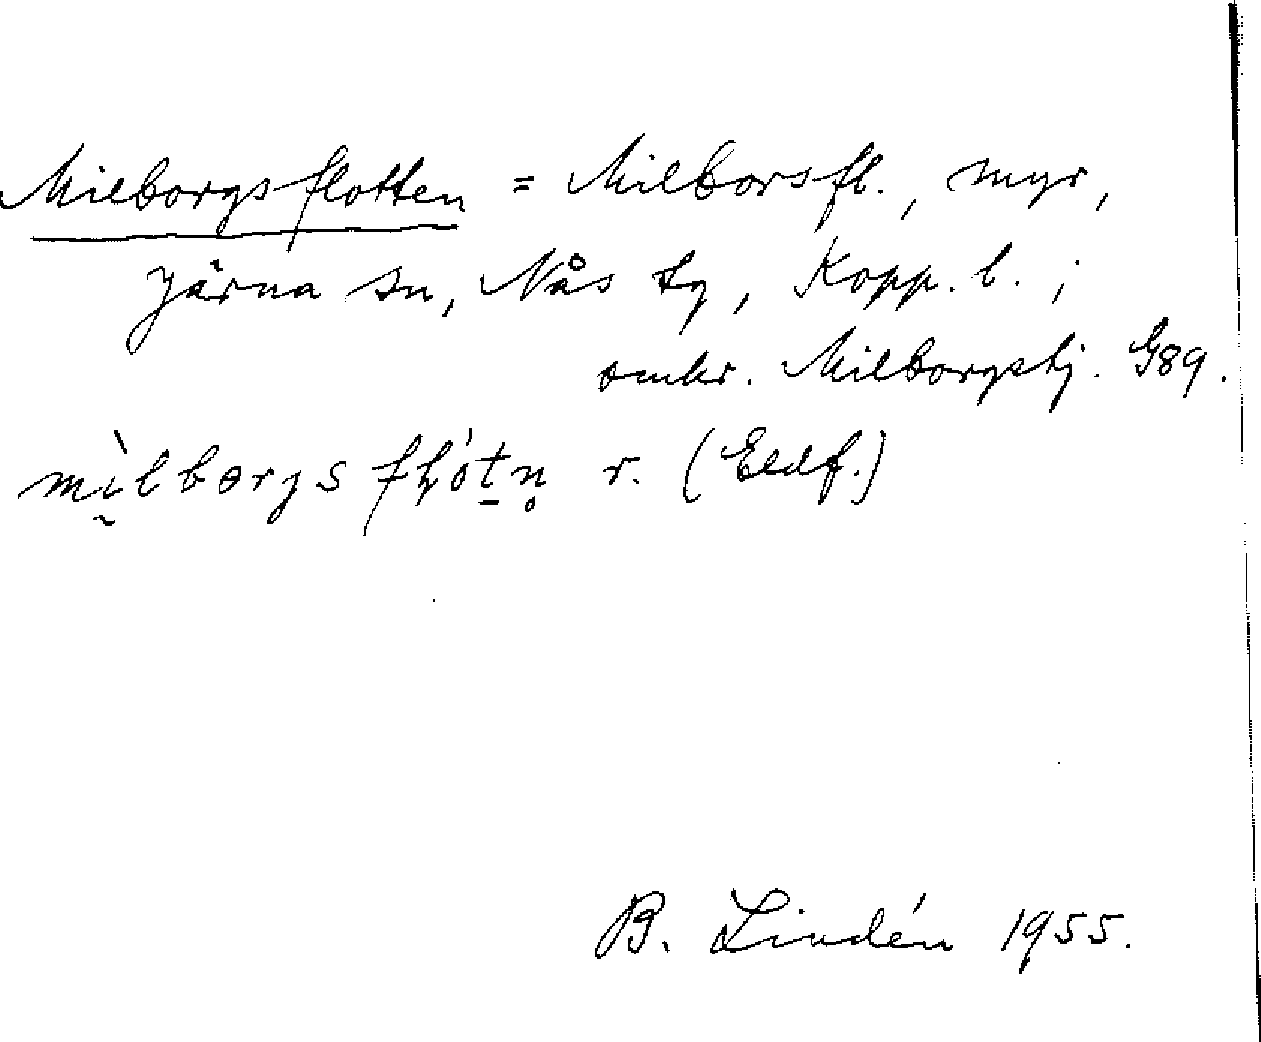 Milborgsflotten = Milborsfl., myr,
Järna sn, Nås tg, Kopp. l. ;
omkr. Milborgstj. G89.
mìlborgsflótn r. (Eldf.)
B. Lindén 1955.